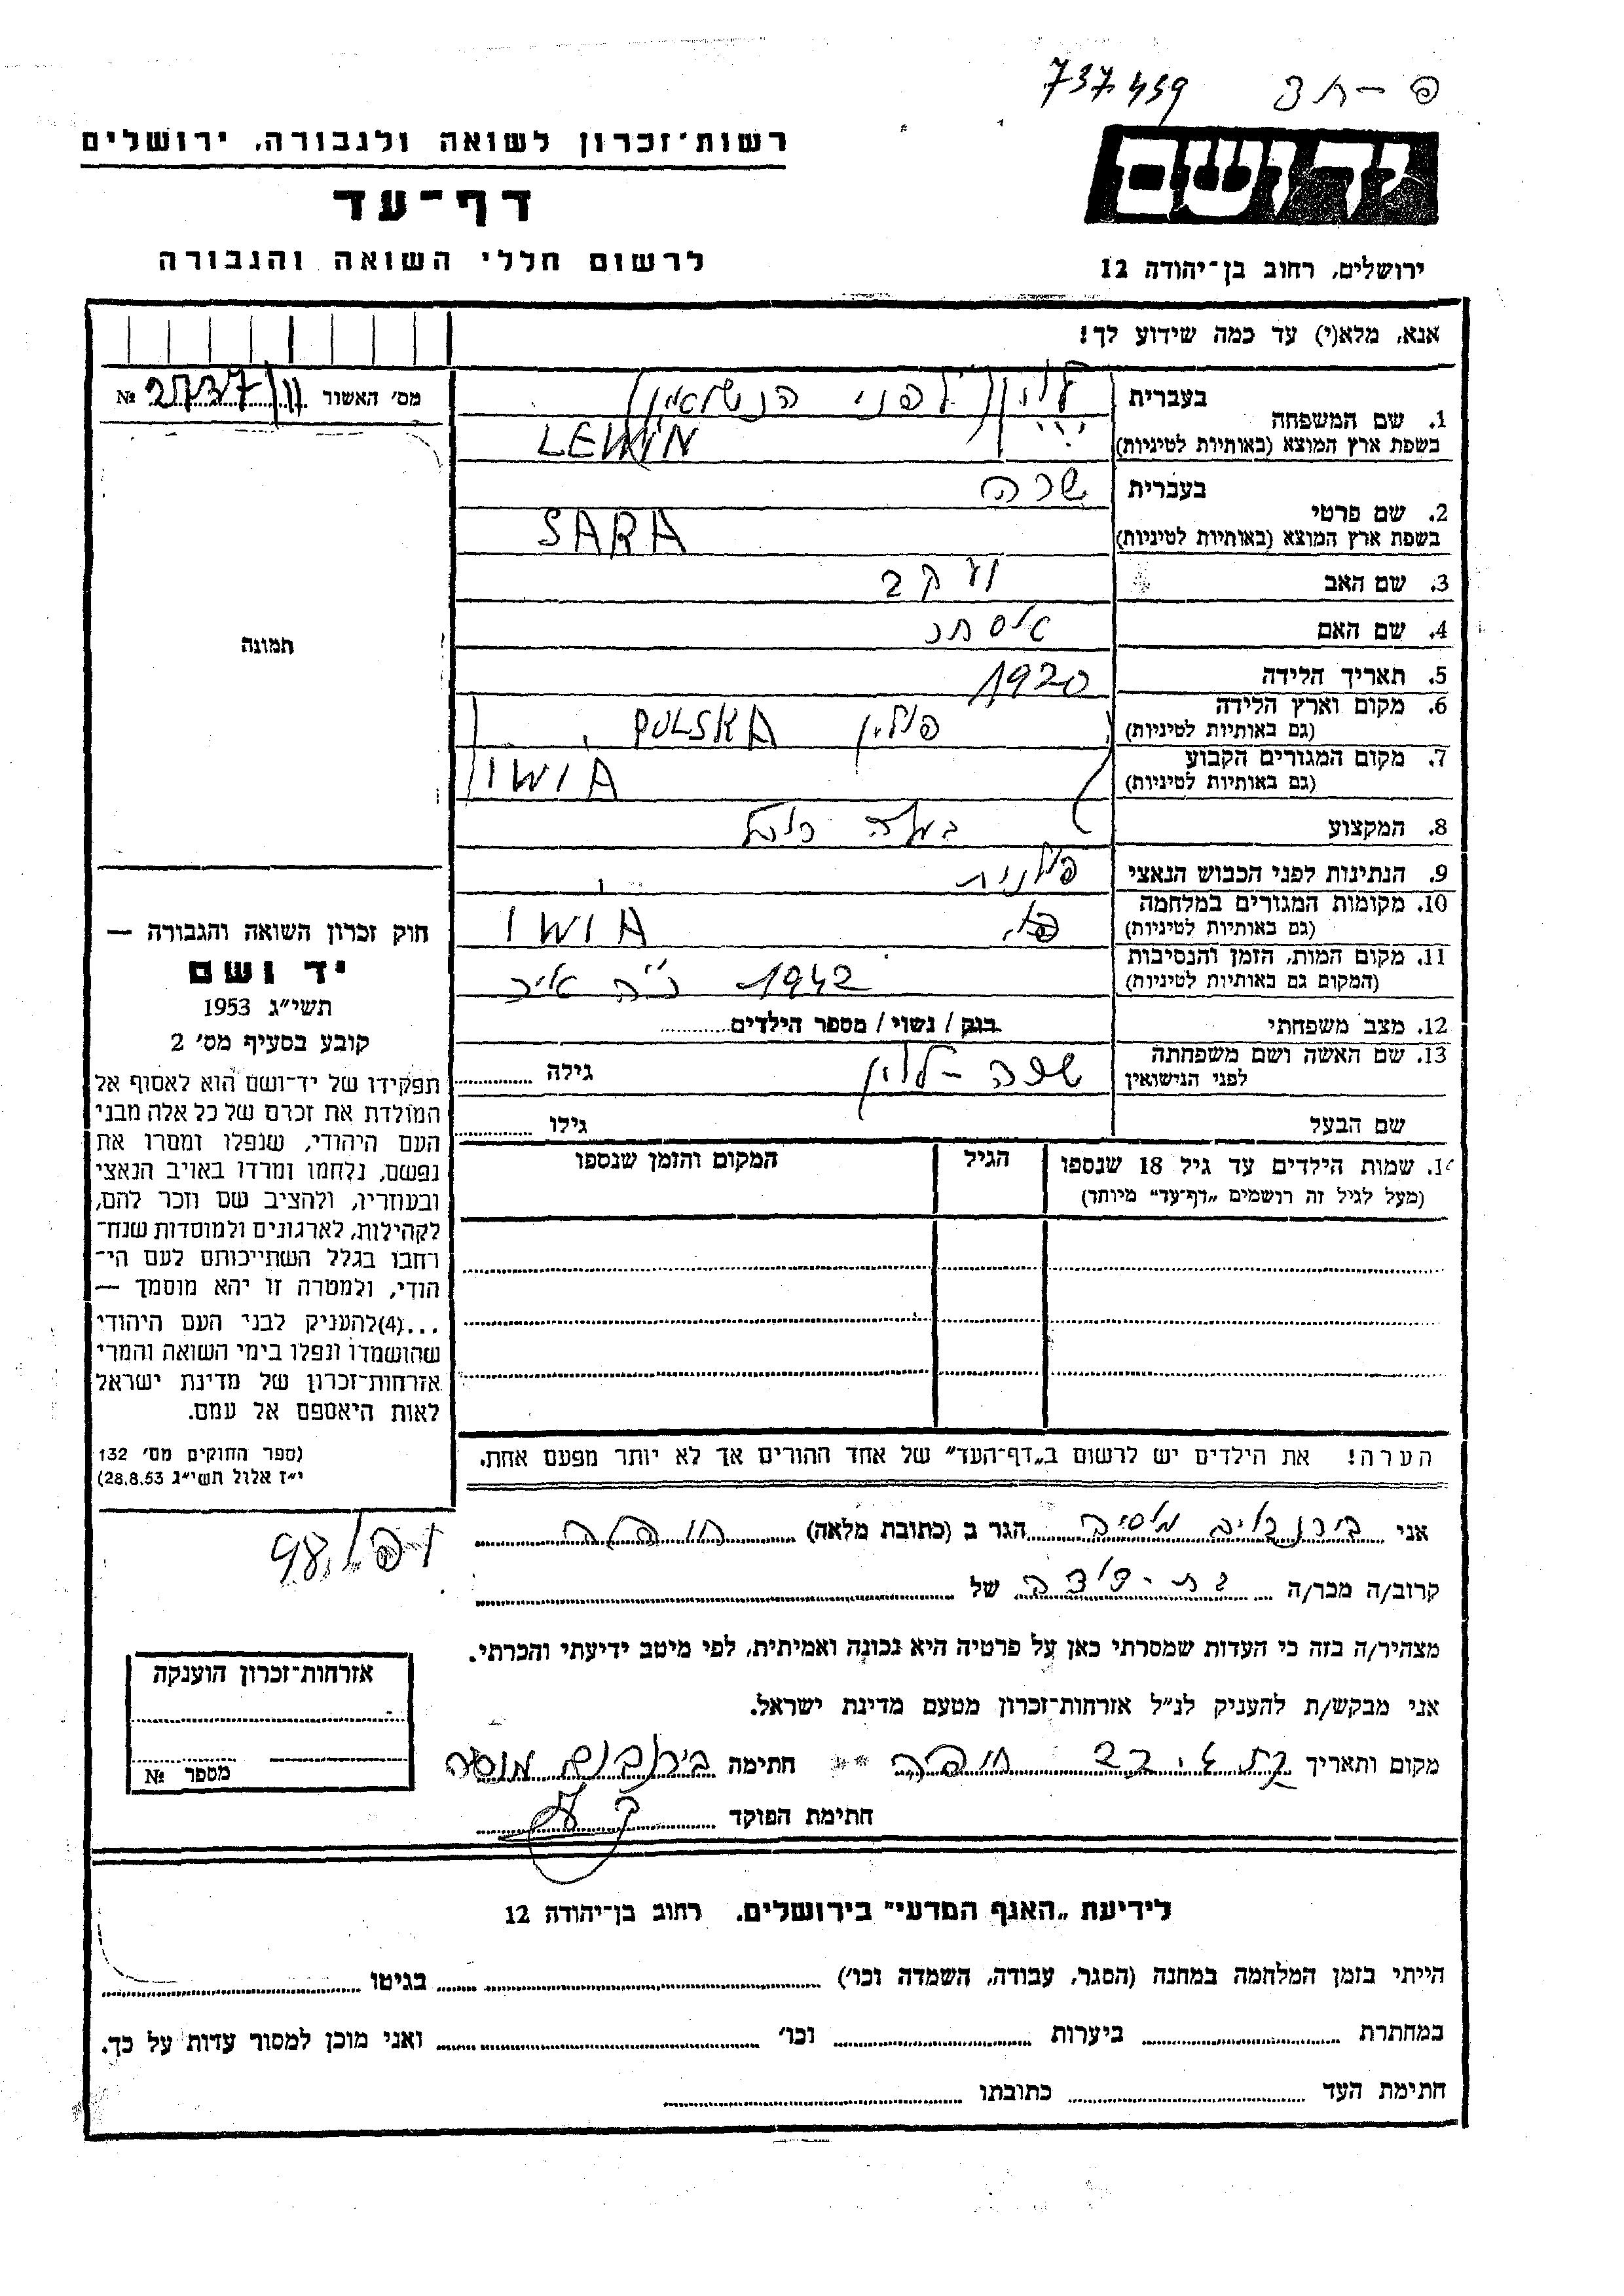 737459 פ-ת 3
יד ושם
ירושלים, רחוב בן־יהודה 12
רשות־זכרון לשואה ולגבורה, ירושלים
דף־עד
לרשום חללי השואה והגבורה
אנא, מלא(י) עד כמה שידוע לך!
מס׳ האשור № 2737/11
1. שם המשפחה
בעברית לוין (לפני הנשואין)
בשפת ארץ המוצא (באותיות לטיניות) LEWIN
2. שם פרטי
בעברית שרה
בשפת ארץ המוצא (באותיות לטיניות) SARA
3. שם האב יעקב
4. שם האם אסתר
5. תאריך הלידה 1920
6. מקום וארץ הלידה
(גם באותיות לטיניות) פולין POLSKA
7. מקום המגורים הקבוע
(גם באותיות לטיניות) IWIA
8. המקצוע
9. הנתינות לפני הכבוש הנאצי פולנית
10. מקומות המגורים במלחמה
(גם באותיות לטיניות) IWIA
11. מקום המות, הזמן והנסיבות
(המקום גם באותיות לטיניות) 1942 כ״ה אייר
12. מצב משפחתי רווק / נשוי / מספר הילדים
13. שם האשה ושם משפחתה
לפני הנישואין שרה - לוין גילה
שם הבעל גילו
14. שמות הילדים עד גיל 18 שנספו
(מעל לגיל זה רושמים „דף־עד״ מיוחד)
הגיל
המקום והזמן שנספו
הערה! את הילדים יש לרשום ב„דף־העד״ של אחד ההורים אך לא יותר מפעם אחת.
תמונה
חוק זכרון השואה והגבורה —
יד ושם
תשי״ג 1953
קובע בסעיף מס׳ 2
תפקידו של יד־ושם הוא לאסוף אל
המולדת את זכרם של כל אלה מבני
העם היהודי, שנפלו ומסרו את
נפשם, נלחמו ומרדו באויב הנאצי
ובעוזריו, ולהציב שם וזכר להם,
לקהילות, לארגונים ולמוסדות שנח־
רחבו בגלל השתייכותם לעם הי־
הודי, ולמטרה זו יהא מוסמך —
...(4)להעניק לבני העם היהודי
שהושמדו ונפלו בימי השואה והמרי
אזרחות־זכרון של מדינת ישראל
לאות היאספם אל עמם.
(ספר החוקים מס׳ 132
י״ז אלול תשי״ג 28.8.53)
אני הגר ב (כתובת מלאה) חיפה
קרוב/ה מכר/ה בת-דודה של
מצהיר/ה בזה כי העדות שמסרתי כאן על פרטיה היא נכונה ואמיתית, לפי מיטב ידיעתי והכרתי.
אני מבקש/ת להעניק לנ״ל אזרחות־זכרון מטעם מדינת ישראל.
מקום ותאריך חיפה חתימה בירנבוים
חתימת הפוקד
אזרחות־זכרון הוענקה
מספר №
לידיעת „האגף המדעי״ בירושלים, רחוב בן־יהודה 12
הייתי בזמן המלחמה במחנה (הסגר, עבודה, השמדה וכו׳) בגיטו
במחתרת ביערות וכו׳ ואני מוכן למסור עדות על כך.
חתימת העד כתובתו